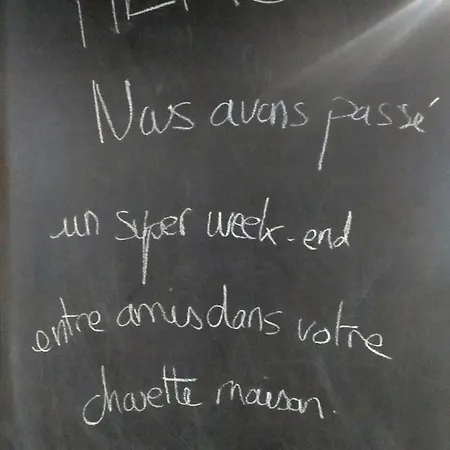 MERCI
Nous avons passé
un super week-end
entre amis dans votre
charette maison.